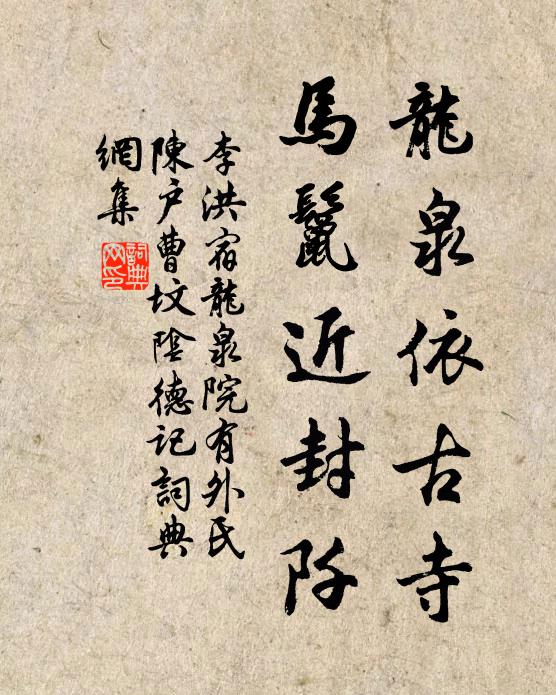 龍泉依古寺
馬鬣近封阡
李洪宿龍泉院有外氏
陳户曹坟陰德記詞典
網集
詞典
网印